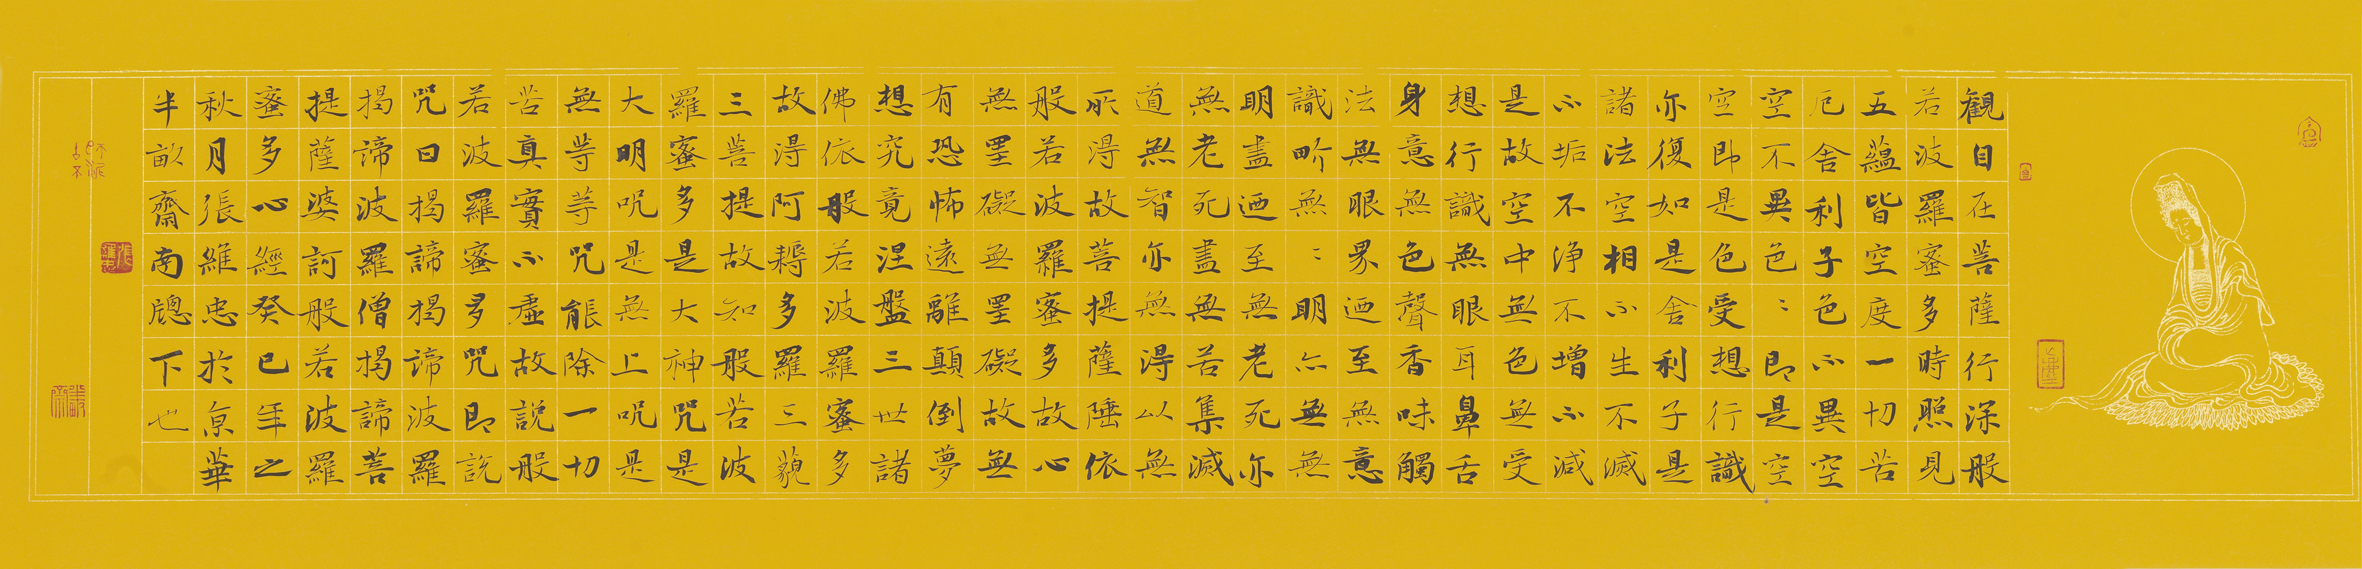 観自在菩薩行深般
若波羅蜜多時照見
五蘊皆空度一切苦
厄舍利子色不異空
空不異色〻即是空
空即是色受想行識
亦復如是舍利子是
諸法空相不生不滅
不垢不淨不增不減
是故空中無色無受
想行識無眼耳鼻舌
身意無色聲香味觸
法無眼界迺至無意
識界無〻明亦無無
明盡迺至無老死亦
無老死盡無苦集滅
道無智亦無得以無
所得故菩提薩埵依
般若波羅蜜多故心
無罣礙無罣礙故無
有恐怖遠離顛倒夢
想究竟涅盤三世諸
佛依般若波羅蜜多
故得阿耨多羅三藐
三菩提故知般若波
羅蜜多是大神咒是
大明咒是無上咒是
無等等咒能除一切
苦真實不虛故說般
若波羅蜜多咒即說
咒曰揭諦揭諦波羅
揭諦波羅僧揭諦菩
提薩婆訶般若波羅
蜜多心經癸巳年之
秋月張維忠於京華
半畝齋南牕下也